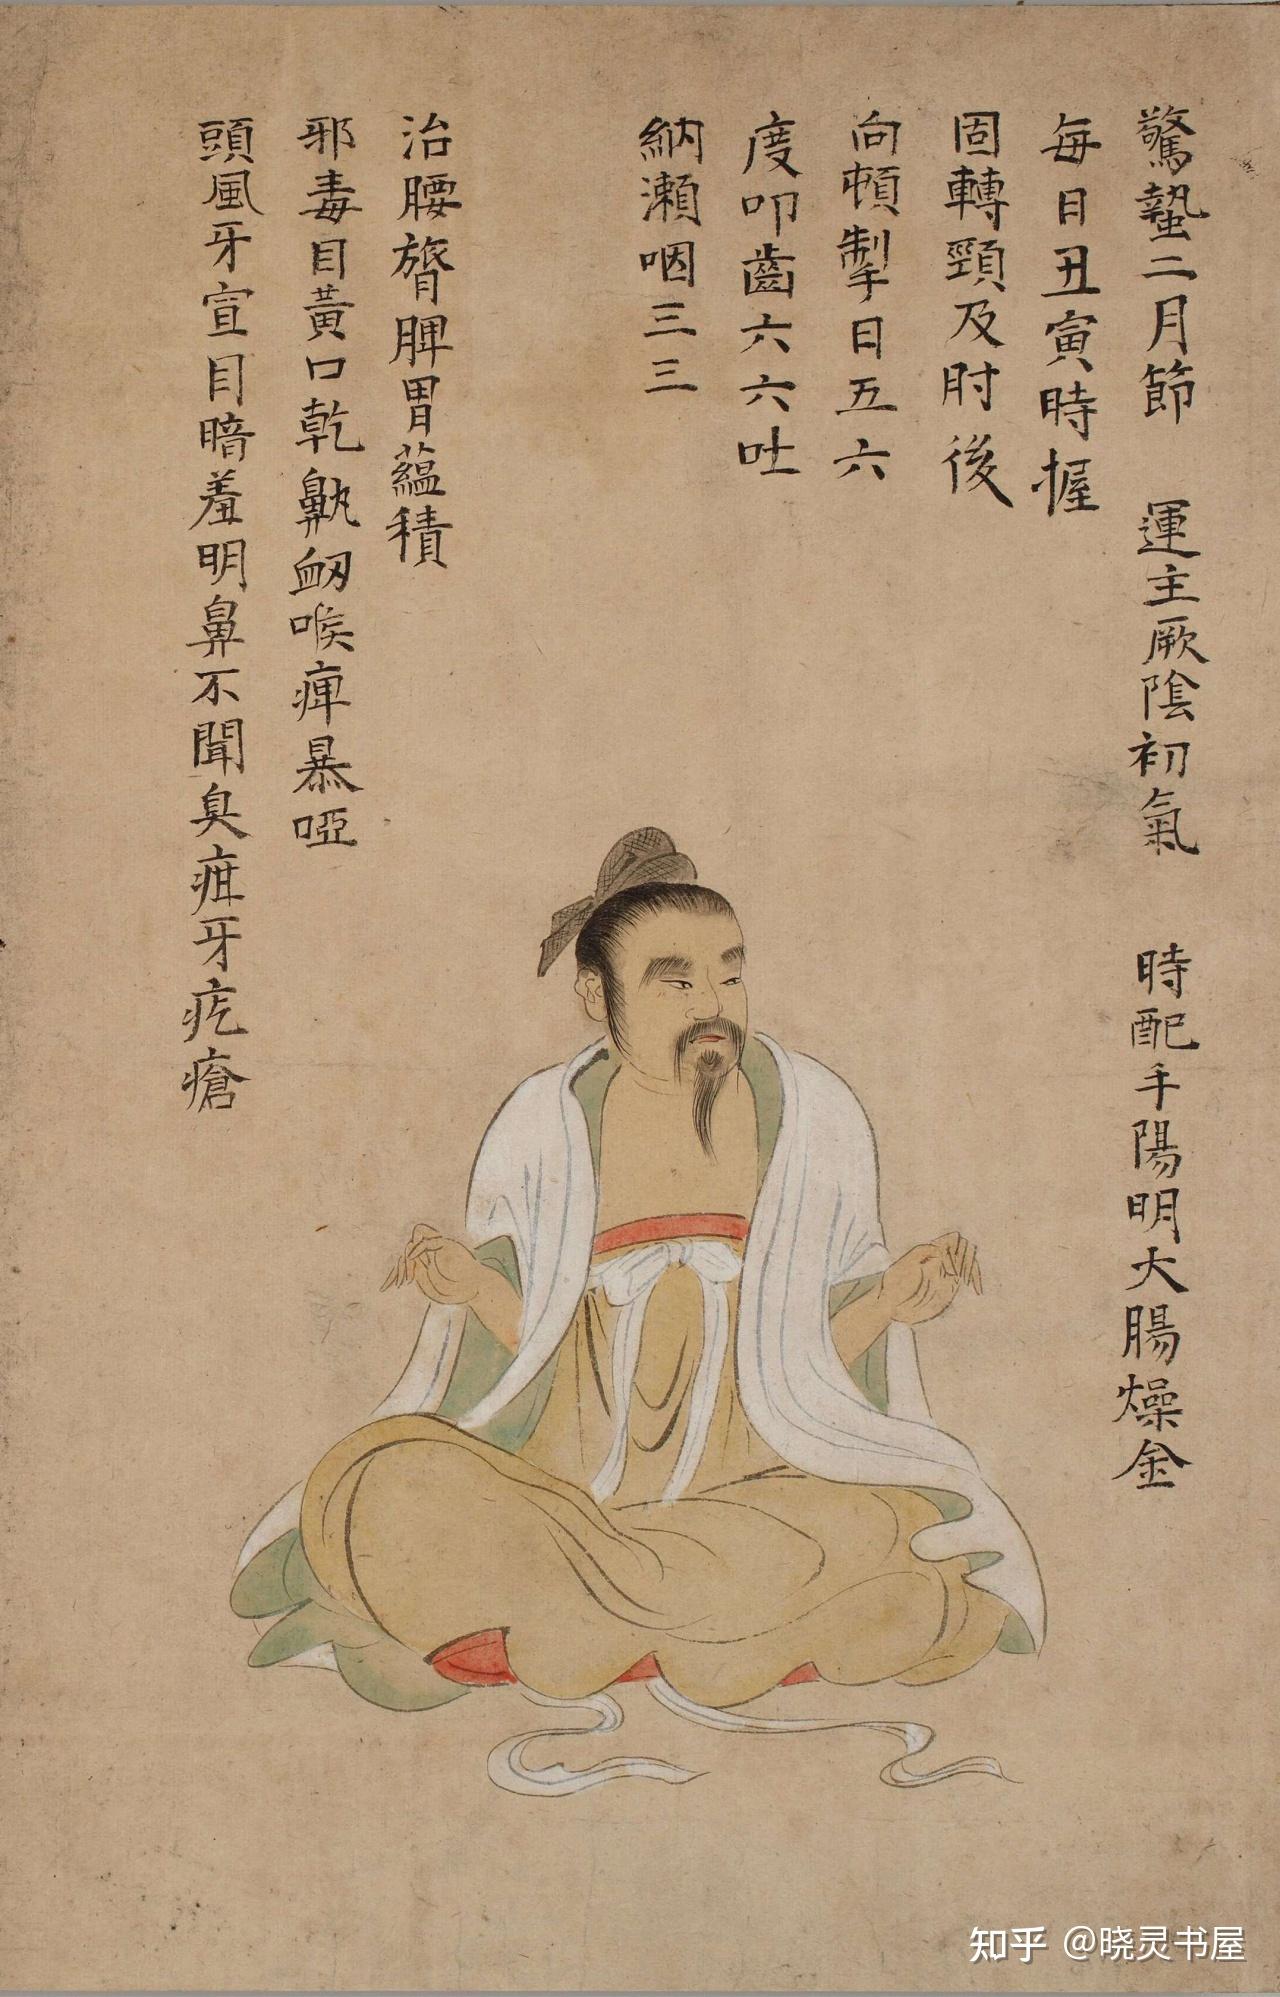 驚蟄二月節 運主厥陰初氣 時配手陽明大腸燥金
每日丑寅時握
固轉頸及肘後
向頓掣日五六
度叩齒六六吐
納漱咽三三
治腰膂脾胃蘊積
邪毒目黃口乾鼽衂喉痺暴啞
頭風牙宣目暗羞明鼻不聞臭疳牙疙瘡
知乎 @晓灵书屋